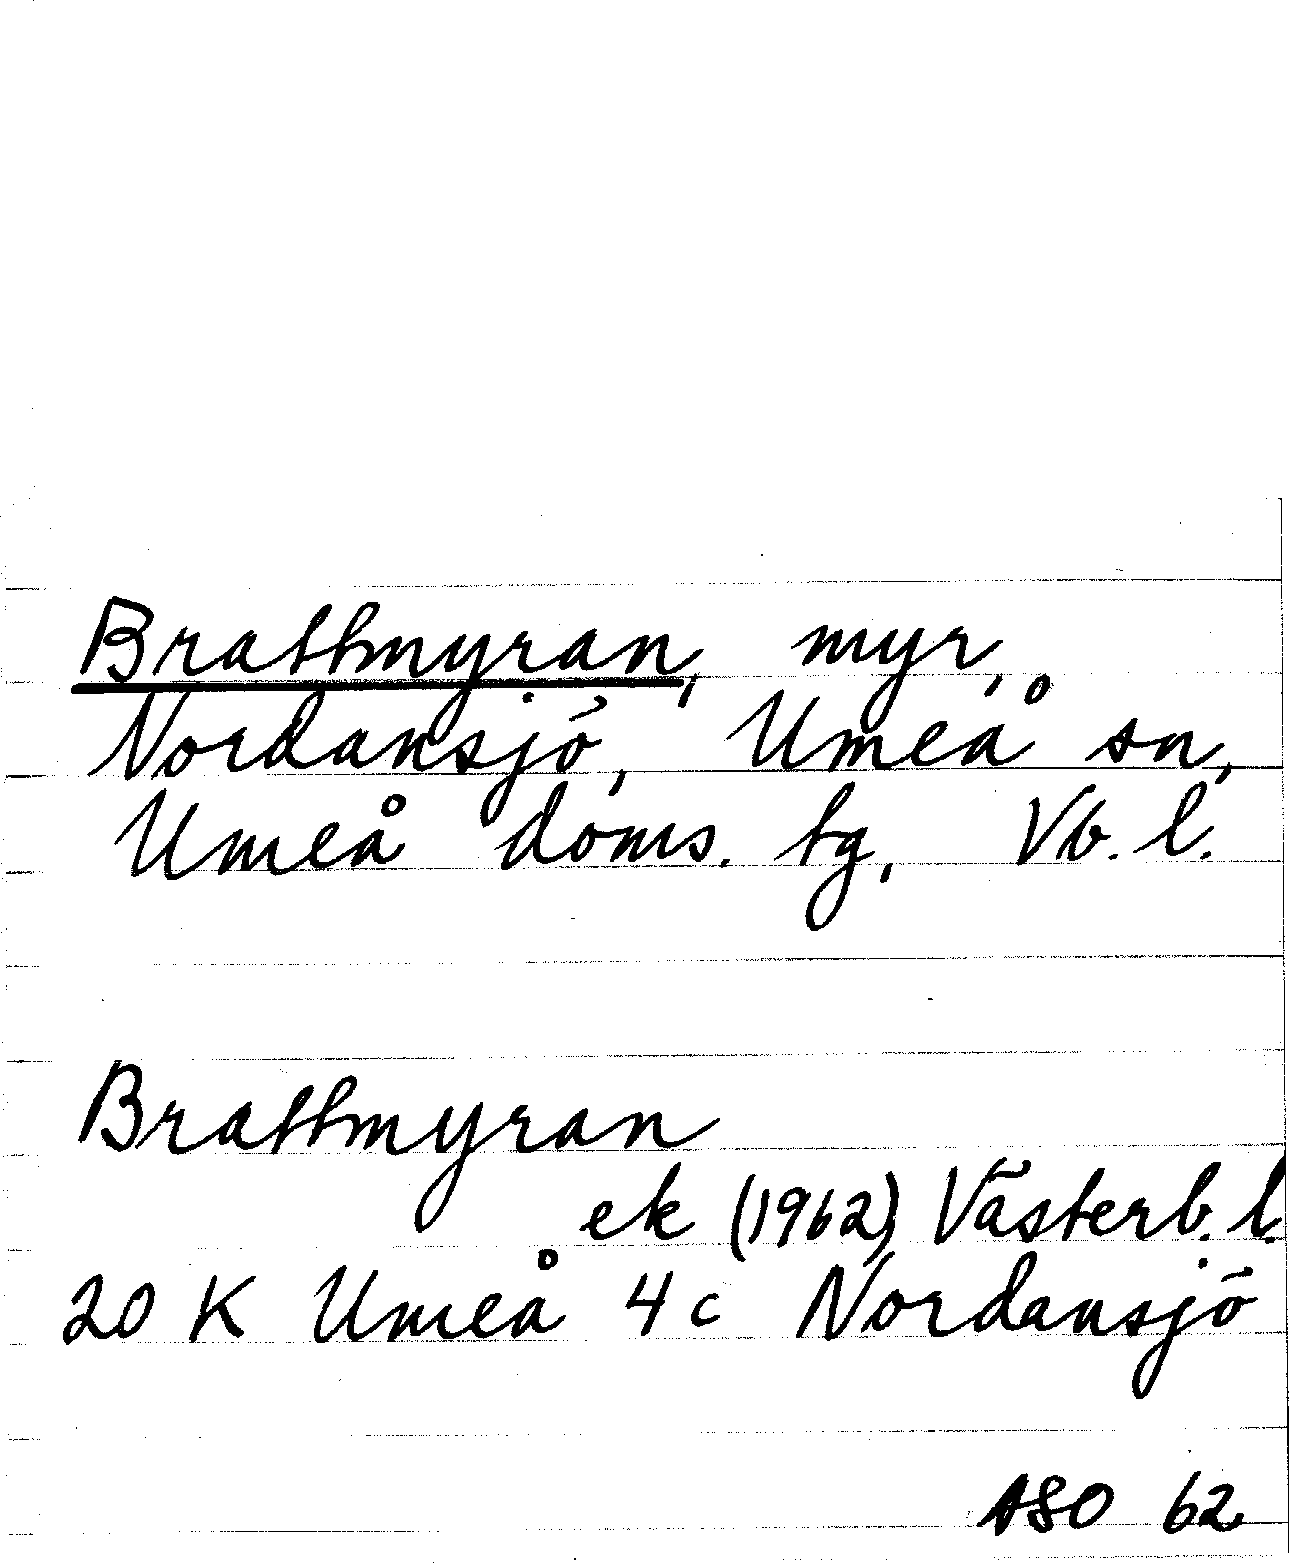 Brattmyran, myr,
Nordansjö, Umeå sn,
Umeå doms. tg, Vb. l.
Brattmyran
ek (1962) Västerb. l.
20 K Umeå 4 c Nordansjö
ASO 62